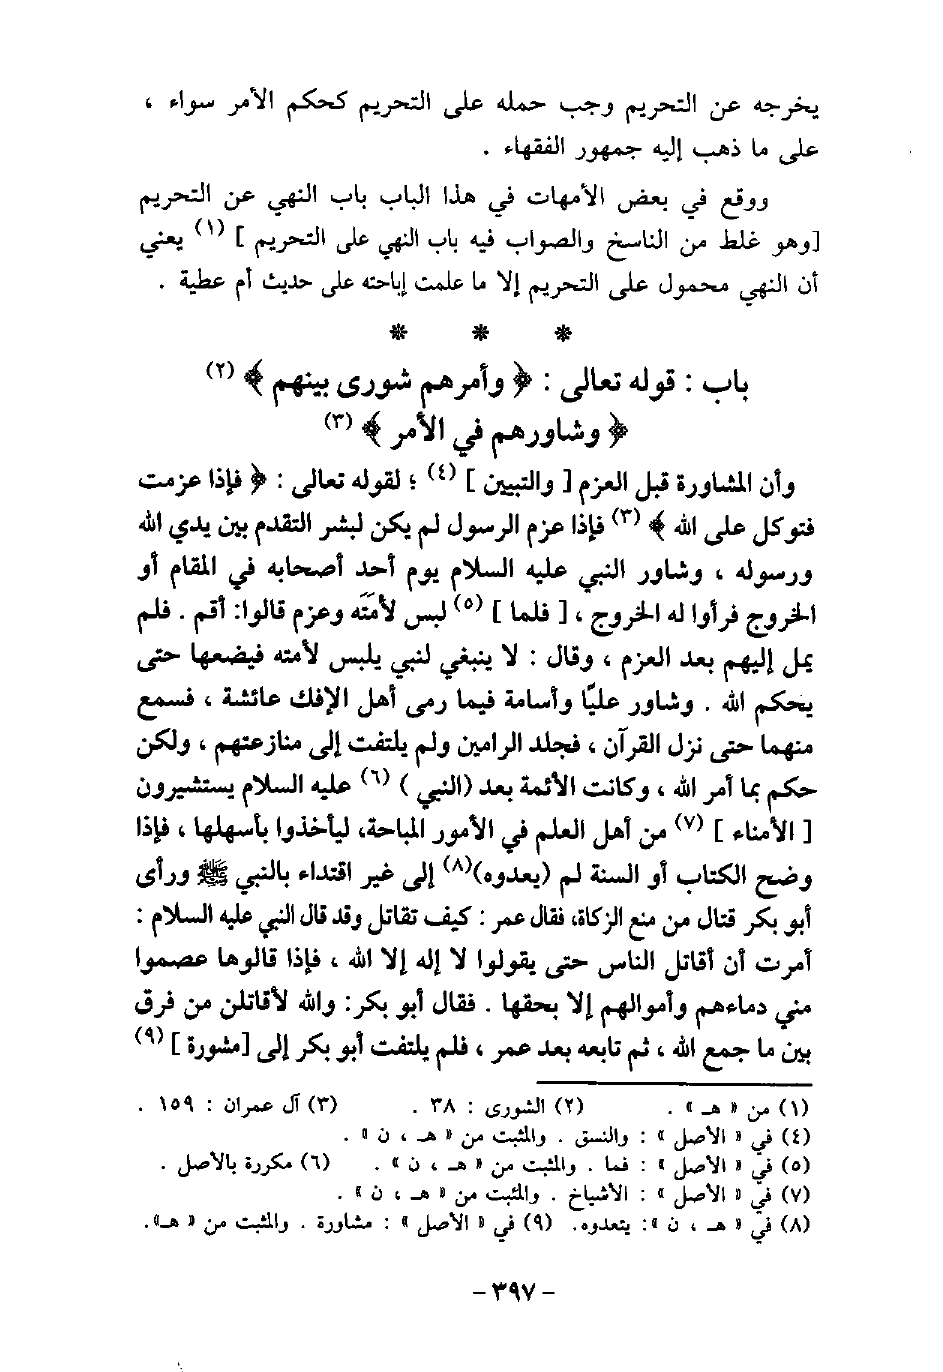 يخرجه عن التحريم وجب حمله على التحريم كحكم الأمر سواء ،
على ما ذهب إليه جمهور الفقهاء .
ووقع في بعض الأمهات في هذا الباب باب النهي عن التحريم
[وهو غلط من الناسخ والصواب فيه باب النهي على التحريم ] (١) يعني
أن النهي محمول على التحريم إلا ما علمت إباحته على حديث أم عطية .
* * *
باب : قوله تعالى : ﴿ وأمرهم شورى بينهم ﴾ (٢)
﴿ وشاورهم في الأمر ﴾ (٣)
وأن المشاورة قبل العزم [ والتبيين ] (٤) ؛ لقوله تعالى : ﴿ فإذا عزمت
فتوكل على الله ﴾ (٣) فإذا عزم الرسول لم يكن لبشر التقدم بين يدي الله
ورسوله ، وشاور النبي عليه السلام يوم أحد أصحابه في المقام أو
الخروج فرأوا له الخروج ، [ فلما ] (٥) لبس لأمَتَه وعزم قالوا: أقم . فلم
يمل إليهم بعد العزم ، وقال : لا ينبغي لنبي يلبس لأمته فيضعها حتى
يحكم الله . وشاور عليًا وأسامة فيما رمى أهل الإفك عائشة ، فسمع
منهما حتى نزل القرآن ، فجلد الرامين ولم يلتفت إلى منازعتهم ، ولكن
حكم بما أمر الله ، وكانت الأئمة بعد (النبي ) (٦) عليه السلام يستشيرون
[ الأمناء ] (٧) من أهل العلم في الأمور المباحة، ليأخذوا بأسهلها ، فإذا
وضح الكتاب أو السنة لم (يعدوه)(٨) إلى غير اقتداء بالنبي ﷺ ورأى
أبو بكر قتال من منع الزكاة، فقال عمر : كيف تقاتل وقد قال النبي عليه السلام :
أمرت أن أقاتل الناس حتى يقولوا لا إله إلا الله ، فإذا قالوها عصموا
مني دماءهم وأموالهم إلا بحقها . فقال أبو بكر: والله لأقاتلن من فرق
بين ما جمع الله ، ثم تابعه بعد عمر ، فلم يلتفت أبو بكر إلى [مشورة ] (٩)
(١) من « هـ » . (٢) الشورى : ٣٨ . (٣) آل عمران : ١٥٩ .
(٤) في « الأصل » : والنسق . والمثبت من « هـ ، ن » .
(٥) في « الأصل » : فما . والمثبت من « هـ ، ن » . (٦) مكررة بالأصل .
(٧) في « الأصل » : الأشياخ . والمثبت من « هـ ، ن » .
(٨) في « هـ ، ن »: يتعدوه. (٩) في « الأصل » : مشاورة . والمثبت من « هـ».
- ٣٩٧ -